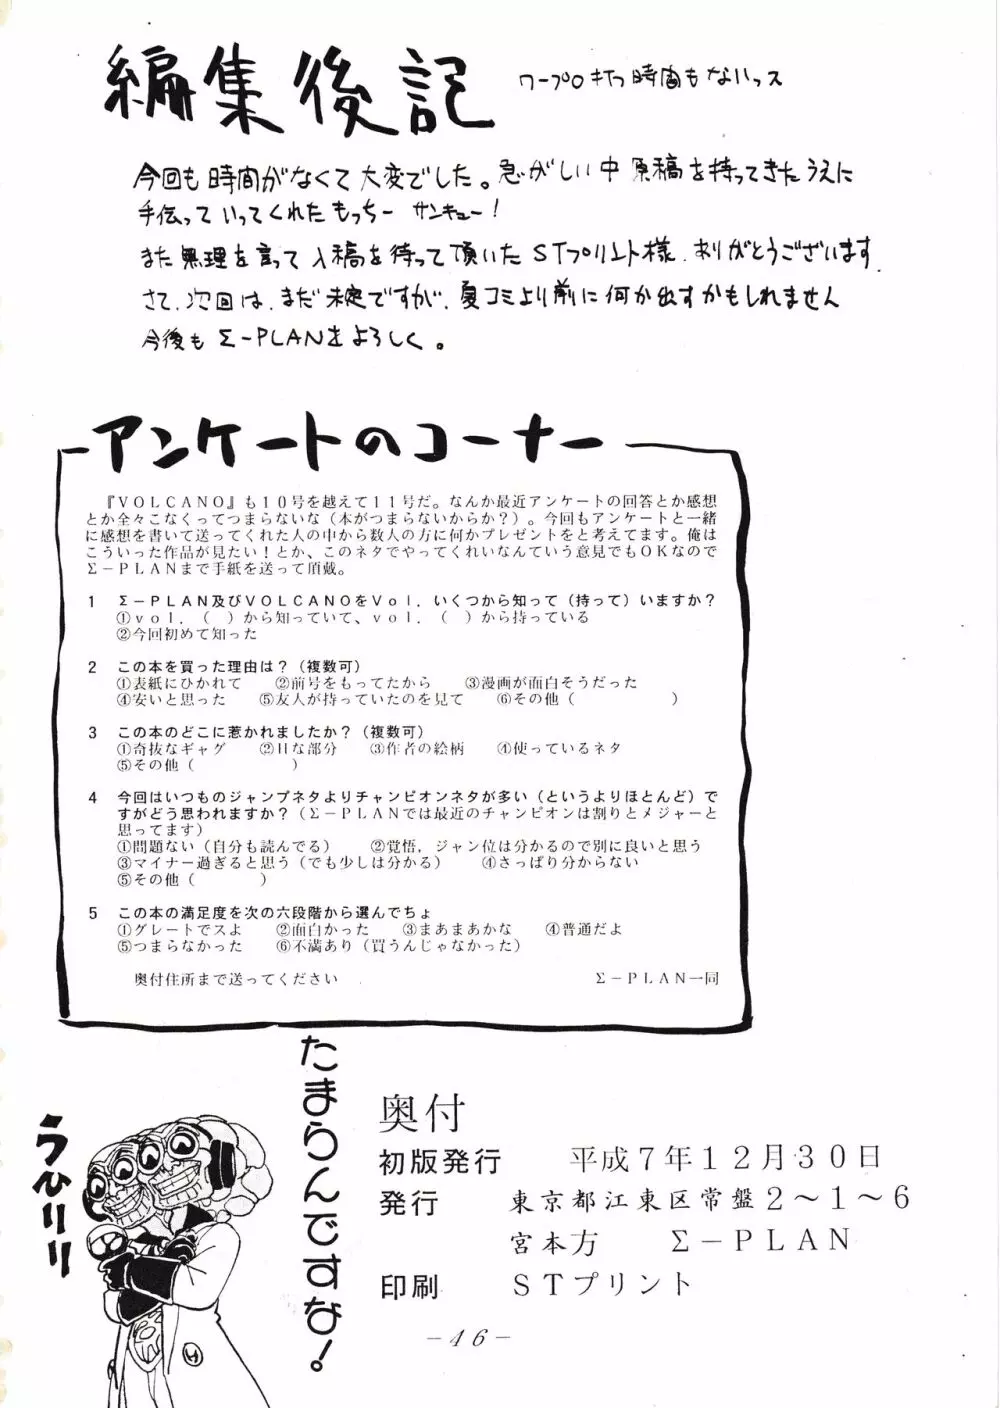 編集後記
ワープロ打つ時間もないっス
今回も時間がなくて大変でした。急がしい中原稿を持ってきたうえに
手伝っていってくれたもっちー サンキュー!
また無理を言って入稿を待って頂いたSTプリント様.ありがとうございます.
さて.次回は.まだ未定ですが.夏コミより前に何か出すかもしれません
今後もΣ-PLANをよろしく。
アンケートのコーナー
『VOLCANO』も10号を越えて11号だ。なんか最近アンケートの回答とか感想
とか全々こなくってつまらないな(本がつまらないからか?)。今回もアンケートと一緒
に感想を書いて送ってくれた人の中から数人の方に何かプレゼントをと考えてます。俺は
こういった作品が見たい!とか、このネタでやってくれいなんていう意見でもOKなので
Σ-PLANまで手紙を送って頂戴。
1 Σ-PLAN及びVOLCANOをVol.いくつから知って(持って)いますか?
①vol.( )から知っていて、vol.( )から持っている
②今回初めて知った
2 この本を買った理由は?(複数可)
①表紙にひかれて ②前号をもってたから ③漫画が面白そうだった
④安いと思った ⑤友人が持っていたのを見て ⑥その他( )
3 この本のどこに惹かれましたか?(複数可)
①奇抜なギャグ ②Hな部分 ③作者の絵柄 ④使っているネタ
⑤その他( )
4 今回はいつものジャンプネタよりチャンピオンネタが多い(というよりほとんど)で
すがどう思われますか?(Σ-PLANでは最近のチャンピオンは割りとメジャーと
思ってます)
①問題ない(自分も読んでる) ②覚悟,ジャン位は分かるので別に良いと思う
③マイナー過ぎると思う(でも少しは分かる) ④さっぱり分からない
⑤その他( )
5 この本の満足度を次の六段階から選んでちょ
①グレートでスよ ②面白かった ③まあまあかな ④普通だよ
⑤つまらなかった ⑥不満あり(買うんじゃなかった)
奥付住所まで送ってください Σ-PLAN一同
たまらんですな!
うひリリ
奥付
初版発行 平成7年12月30日
発行 東京都江東区常盤2〜1〜6
宮本方 Σ-PLAN
印刷 STプリント
-46-